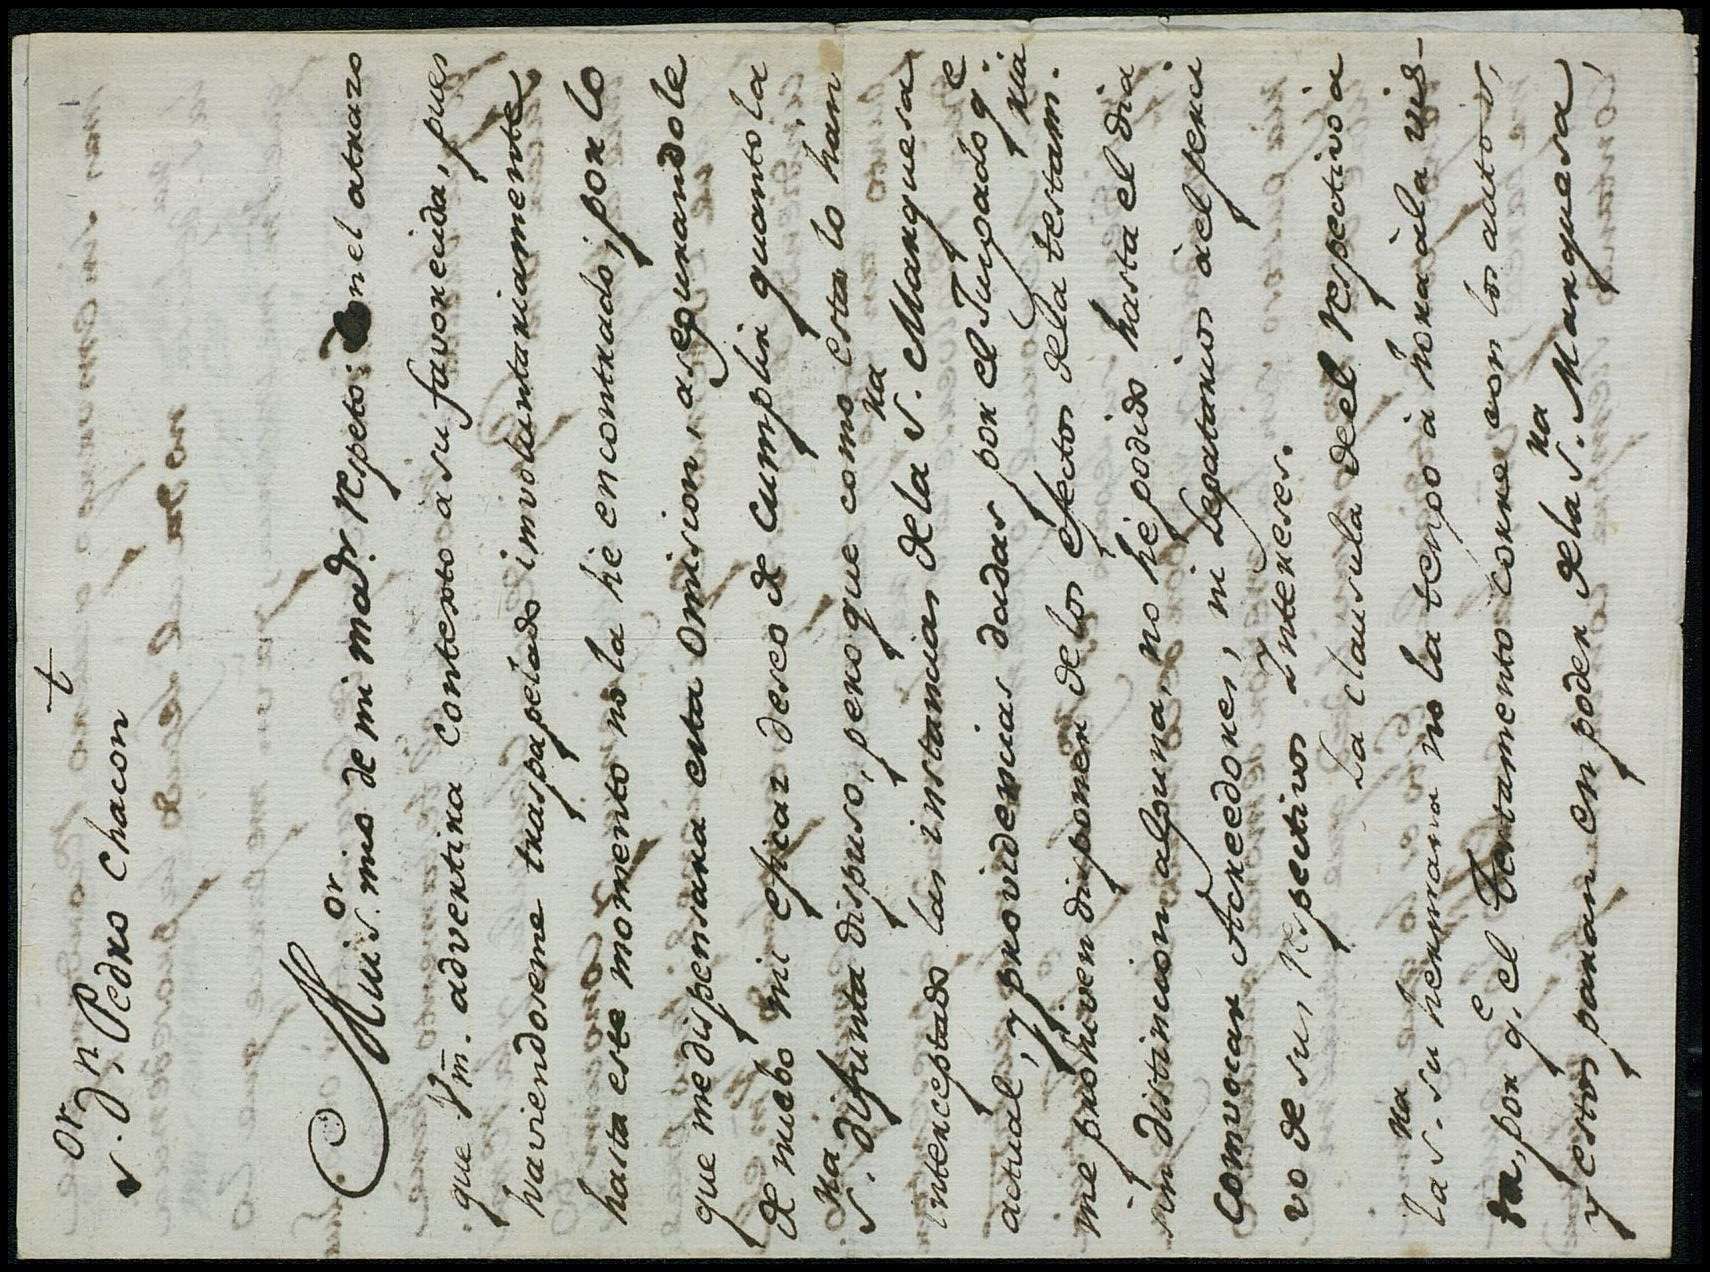 t
S.or Dn. Pedro Chacon
Mui S.or mio de mi mad.r respeto. En el atraso
que Vm. advertira contexto a su favorecida, pues
haviendoseme traspapelado involuntariamente
hasta este momento no la hè encontrado, por lo
que me dispensara esta omision, asegurandole
de nuebo mi eficaz deseo de cumplir quanto la
S.ra difunta dispuso, pero que como esta lo han
interceptado las instancias de la S.ra Marquesa
actual, y providencias dadas por el Juzgado q.e
me prohiven disponer de los efectos de la testam.ria
sin distincion alguna, no hè podido hasta el dia
convocar Acreedores, ni Legatarios à el perci
vo de sus respectivos Intereses.
La clausula de el respectivo a
la S.ra su hermana no la tengo à hora à la vis-
ta, por q.e el testamento corre con los autos,
y estos paran en poder de la S.ra Marquesa,